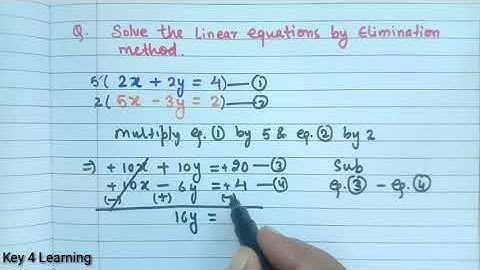 Q. Solve the Linear equations by Elimination
method.
5( 2x + 2y = 4)—①
2( 5x - 3y = 2)—②
multiply eq. ① by 5 & eq. ② by 2
⇒ +10x + 10y = +20 —③ Sub
+10x - 6y = +4 —④ eq.③ - eq.④
(-) (+) (-)
16y =
Key 4 Learning